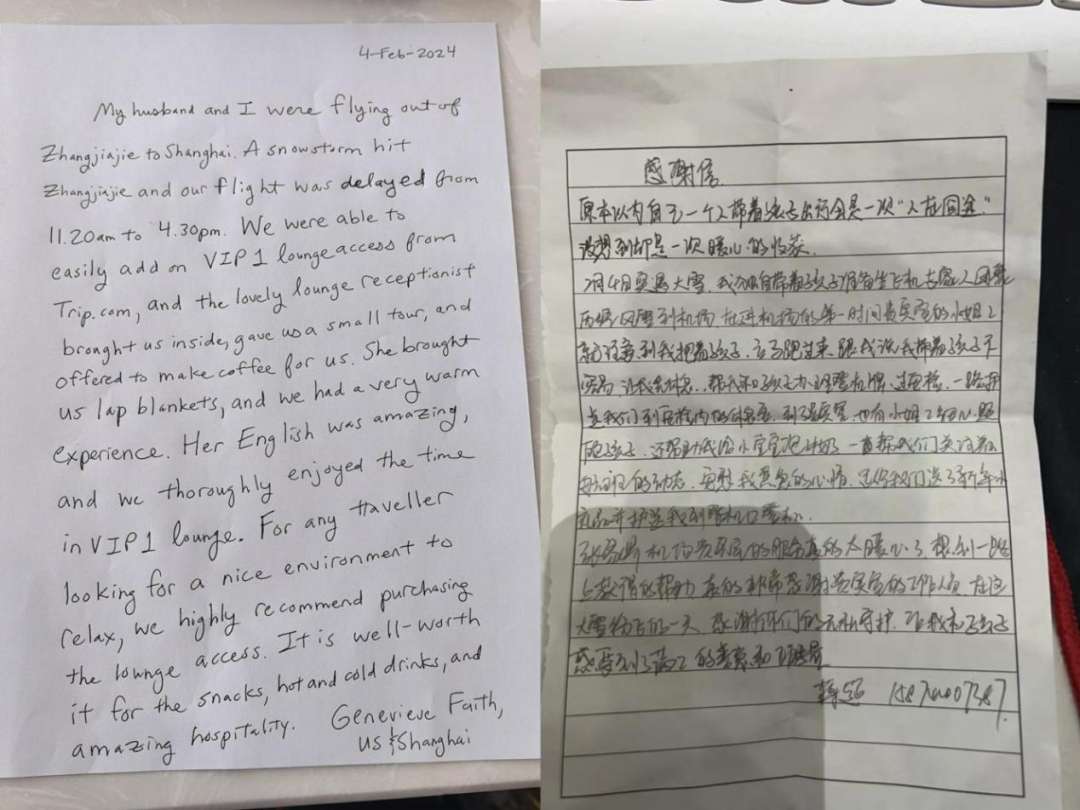 4-Feb-2024
My husband and I were flying out of
Zhangjiajie to Shanghai. A snowstorm hit
Zhangjiajie and our flight was delayed from
11.20am to 4.30pm. We were able to
easily add on VIP 1 lounge access from
Trip.com, and the lovely lounge receptionist
brought us inside, gave us a small tour, and
offered to make coffee for us. She brought
us lap blankets, and we had a very warm
experience. Her English was amazing,
and we thoroughly enjoyed the time
in VIP 1 lounge. For any traveller
looking for a nice environment to
relax, we highly recommend purchasing
the lounge access. It is well-worth
it for the snacks, hot and cold drinks, and
amazing hospitality. Genevieve Faith,
US & Shanghai
感谢信
原本以为自己一个人带着孩子出行会是一次"人在囧途"
没想到却是一次暖心的收获.
2月4日突遇大雪.我独自带着孩子准备坐飞机去
到机场.在进机场的第一时间贵宾室的小姐姐
就注意到我抱着孩子.立马跑过来.跟我说我带着孩子不
容易.让我.帮我和孩子办理登机牌.过安检.一路护
送我们到安检内的休息室.到了贵宾室.也有小姐姐细心照
顾孩子.还帮助我给小宝宝泡牛奶.一直帮我们关注着
航班的动态.安慰我焦急的心情.还给我们送了新年小
礼品并护送我到登机口登机.
张家界机场贵宾室的服务真的太暖心了.想到一路
上获得的帮助.真的非常感谢贵宾室的工作人员.在这
大雪纷飞的一天.感谢你们的无私守护.让我和孩子
感受到了满满的善意和